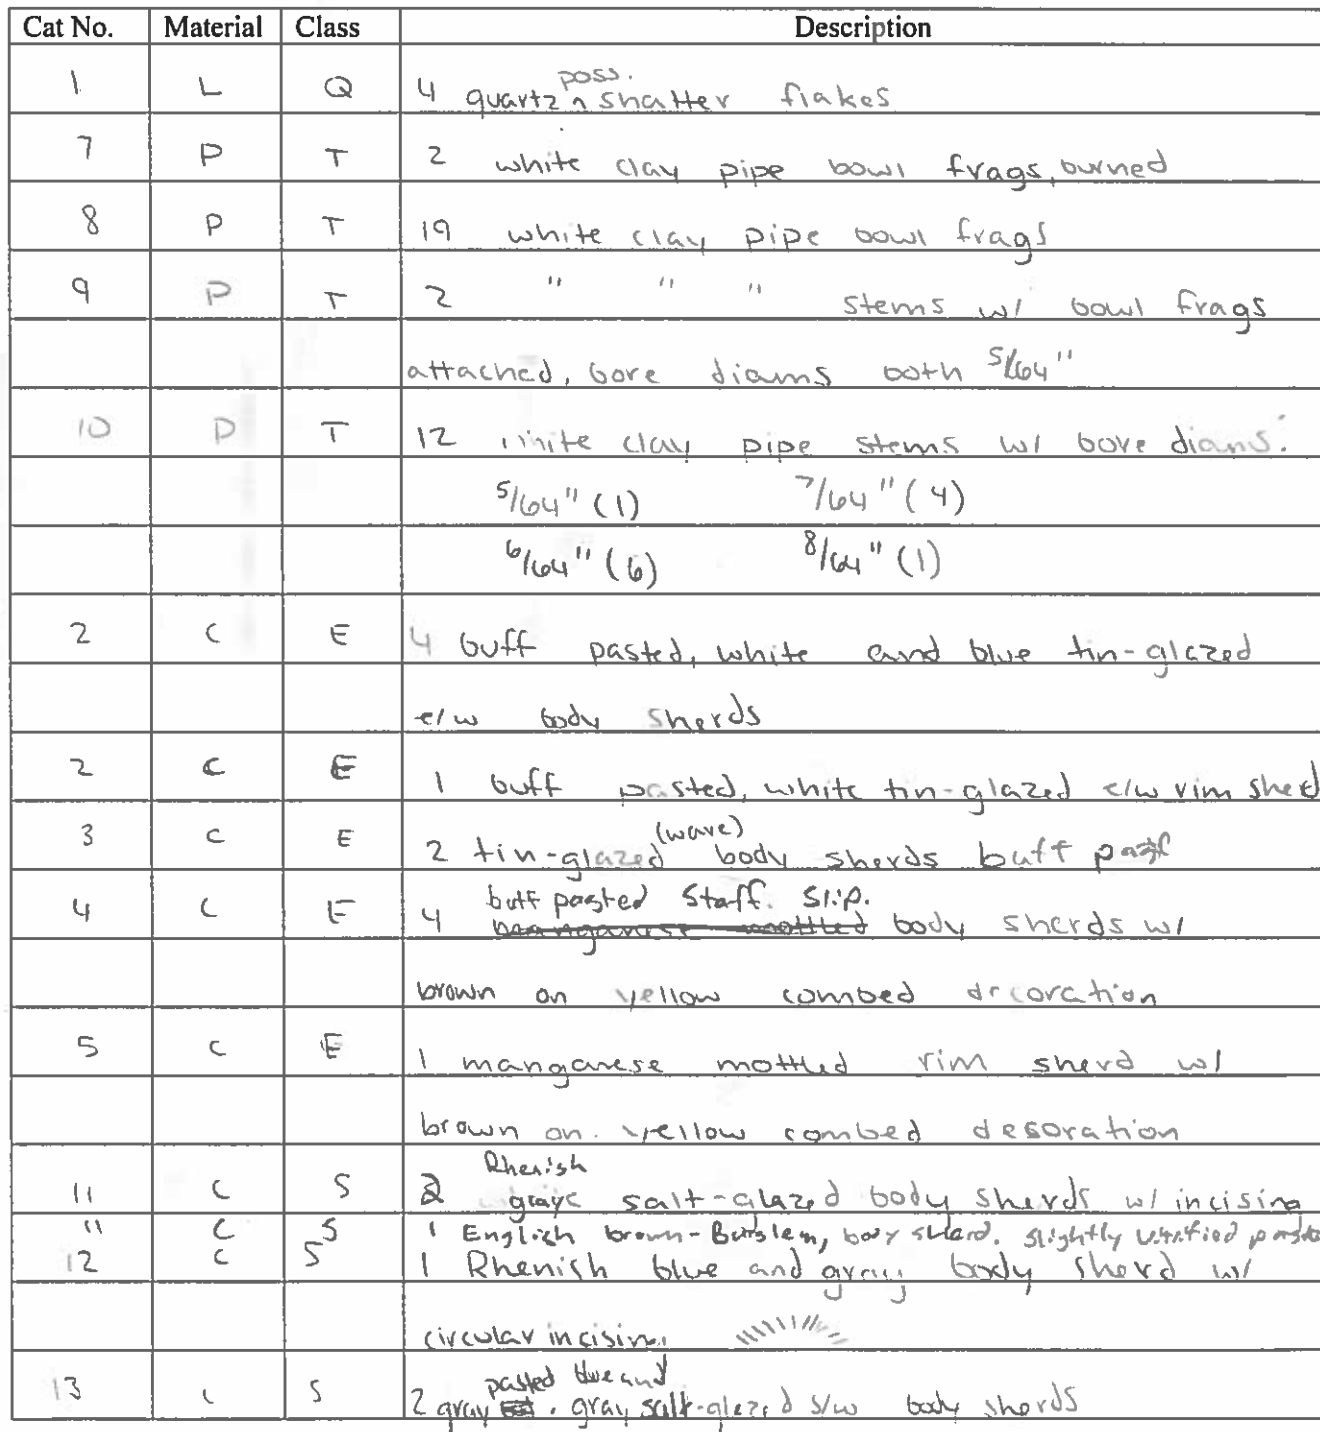 Cat No. Material Class Description
1 L Q 4 quartz ^ poss. shatter flakes
7 P T 2 white clay pipe bowl frags, burned
8 P T 19 white clay pipe bowl frags
9 P T 2 " " " stems w/ bowl frags
attached, bore diams both 5/64"
10 P T 12 white clay pipe stems w/ bore diams.
5/64" (1) 7/64" (4)
6/64" (6) 8/64" (1)
2 C E 4 buff pasted, white and blue tin-glazed
e/w body sherds
2 C E 1 buff pasted, white tin-glazed e/w rim sherd
3 C E 2 tin-glazed (wave) body sherds buff past
4 C E 4 buff pasted Staff. Slip. manganese mottled body sherds w/
brown on yellow combed decoration
5 C E 1 manganese mottled rim sherd w/
brown on yellow combed desoration
11 C S 2 Rhenish graye salt-glazed body sherds w/ incising
" C S 1 English brown-Burslem, body sherd. slightly vitrified paste
12 C S 1 Rhenish blue and gray body sherd w/
circular incising
13 C S 2 gray pasted blue and gray salt-glazed s/w body sherds